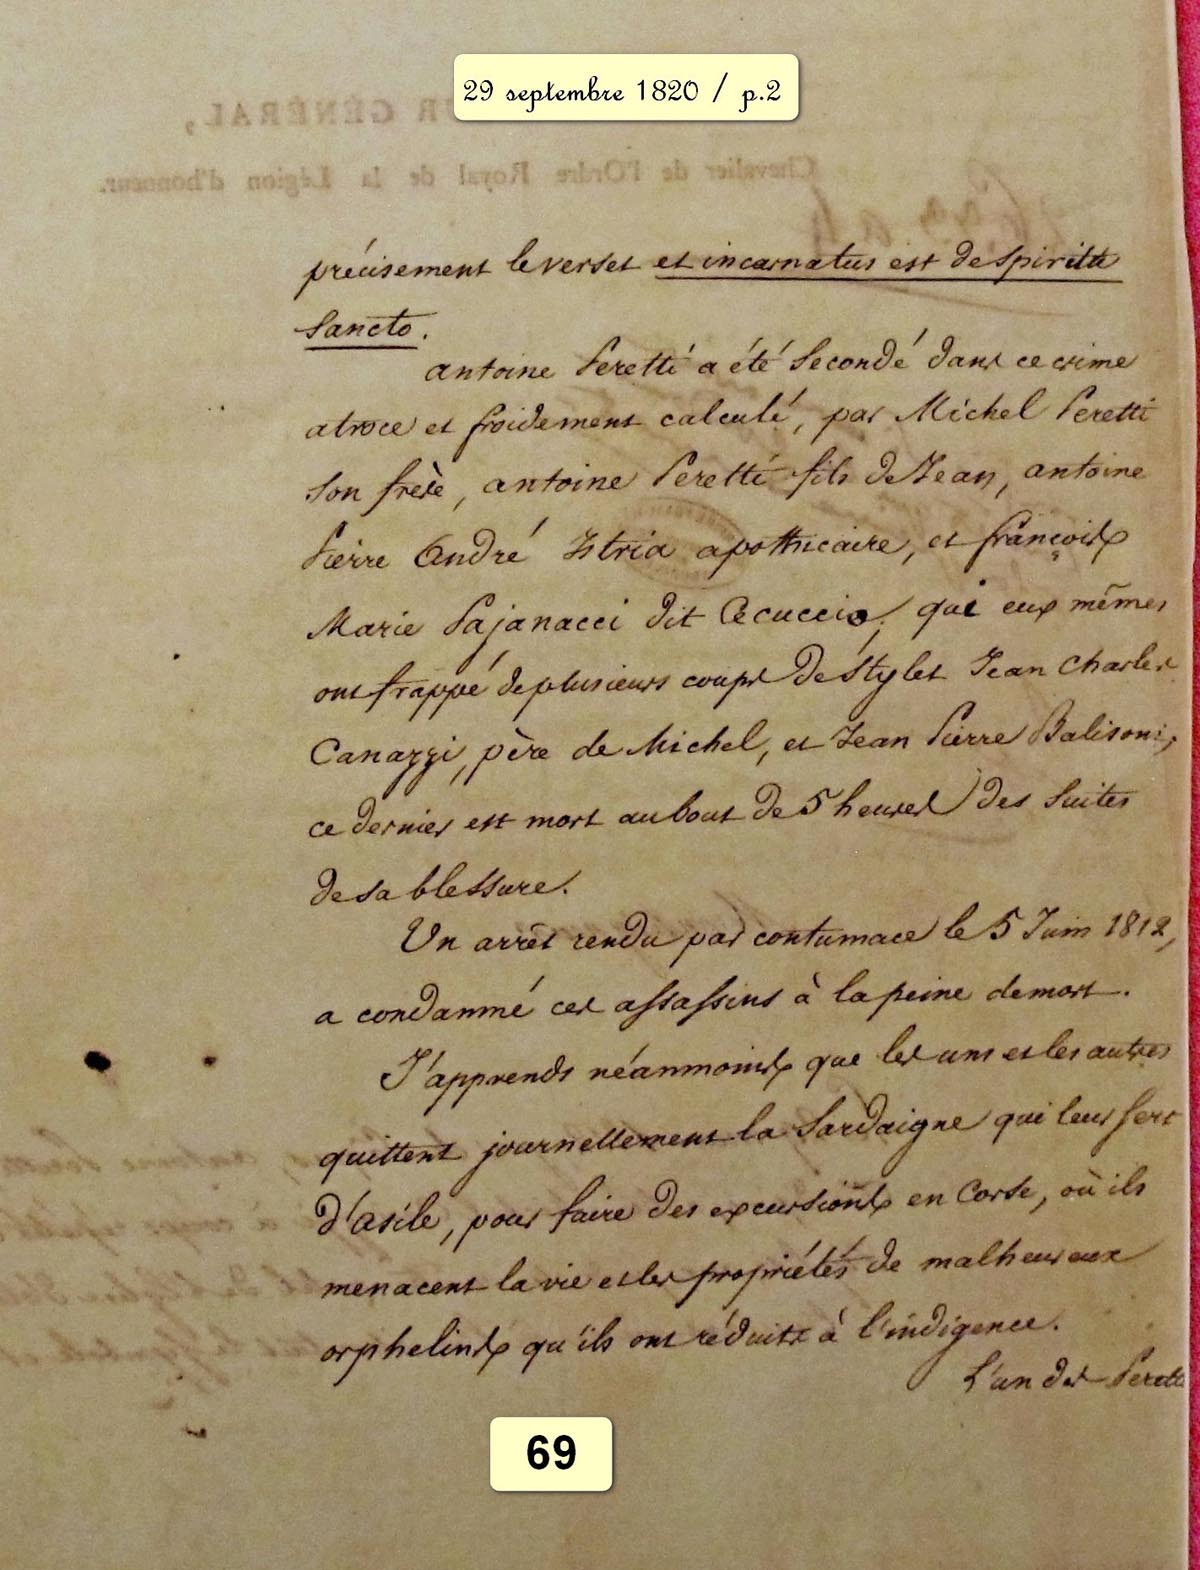 29 septembre 1820 / p.2
R GÉNÉRAL,
Chevalier de l'Ordre Royal de la Légion d'honneur.
précisement le verset et incarnatus est de Spiritu
Sancto.
antoine Peretti a été Secondé dans ce crime
atroce et froidement calculé, par Michel Peretti
Son frère, antoine Peretti fils de Jean, antoine
Pierre André Istria apothicaire, et françois
Marie Pajanacci dit Cecuccio, qui eux mêmes
ont frappé de plusieurs coups de Stylet Jean Charles
Canazzi, père de Michel, et Jean Pierre Balisoni,
ce dernier est mort au bout de 5 heures des Suites
de sa blessure.
Un arrêt rendu par contumace le 5 Juin 1812,
a condamné ces assassins à la peine de mort.
J'apprends néanmoins que les uns et les autres
quittent journellement la Sardaigne qui leur Sert
d'asile, pour faire des excursions en Corse, où ils
menacent la vie et les propriétés de malheureux
orphelins qu'ils ont réduits à l'indigence.
L'un des Peretti
69